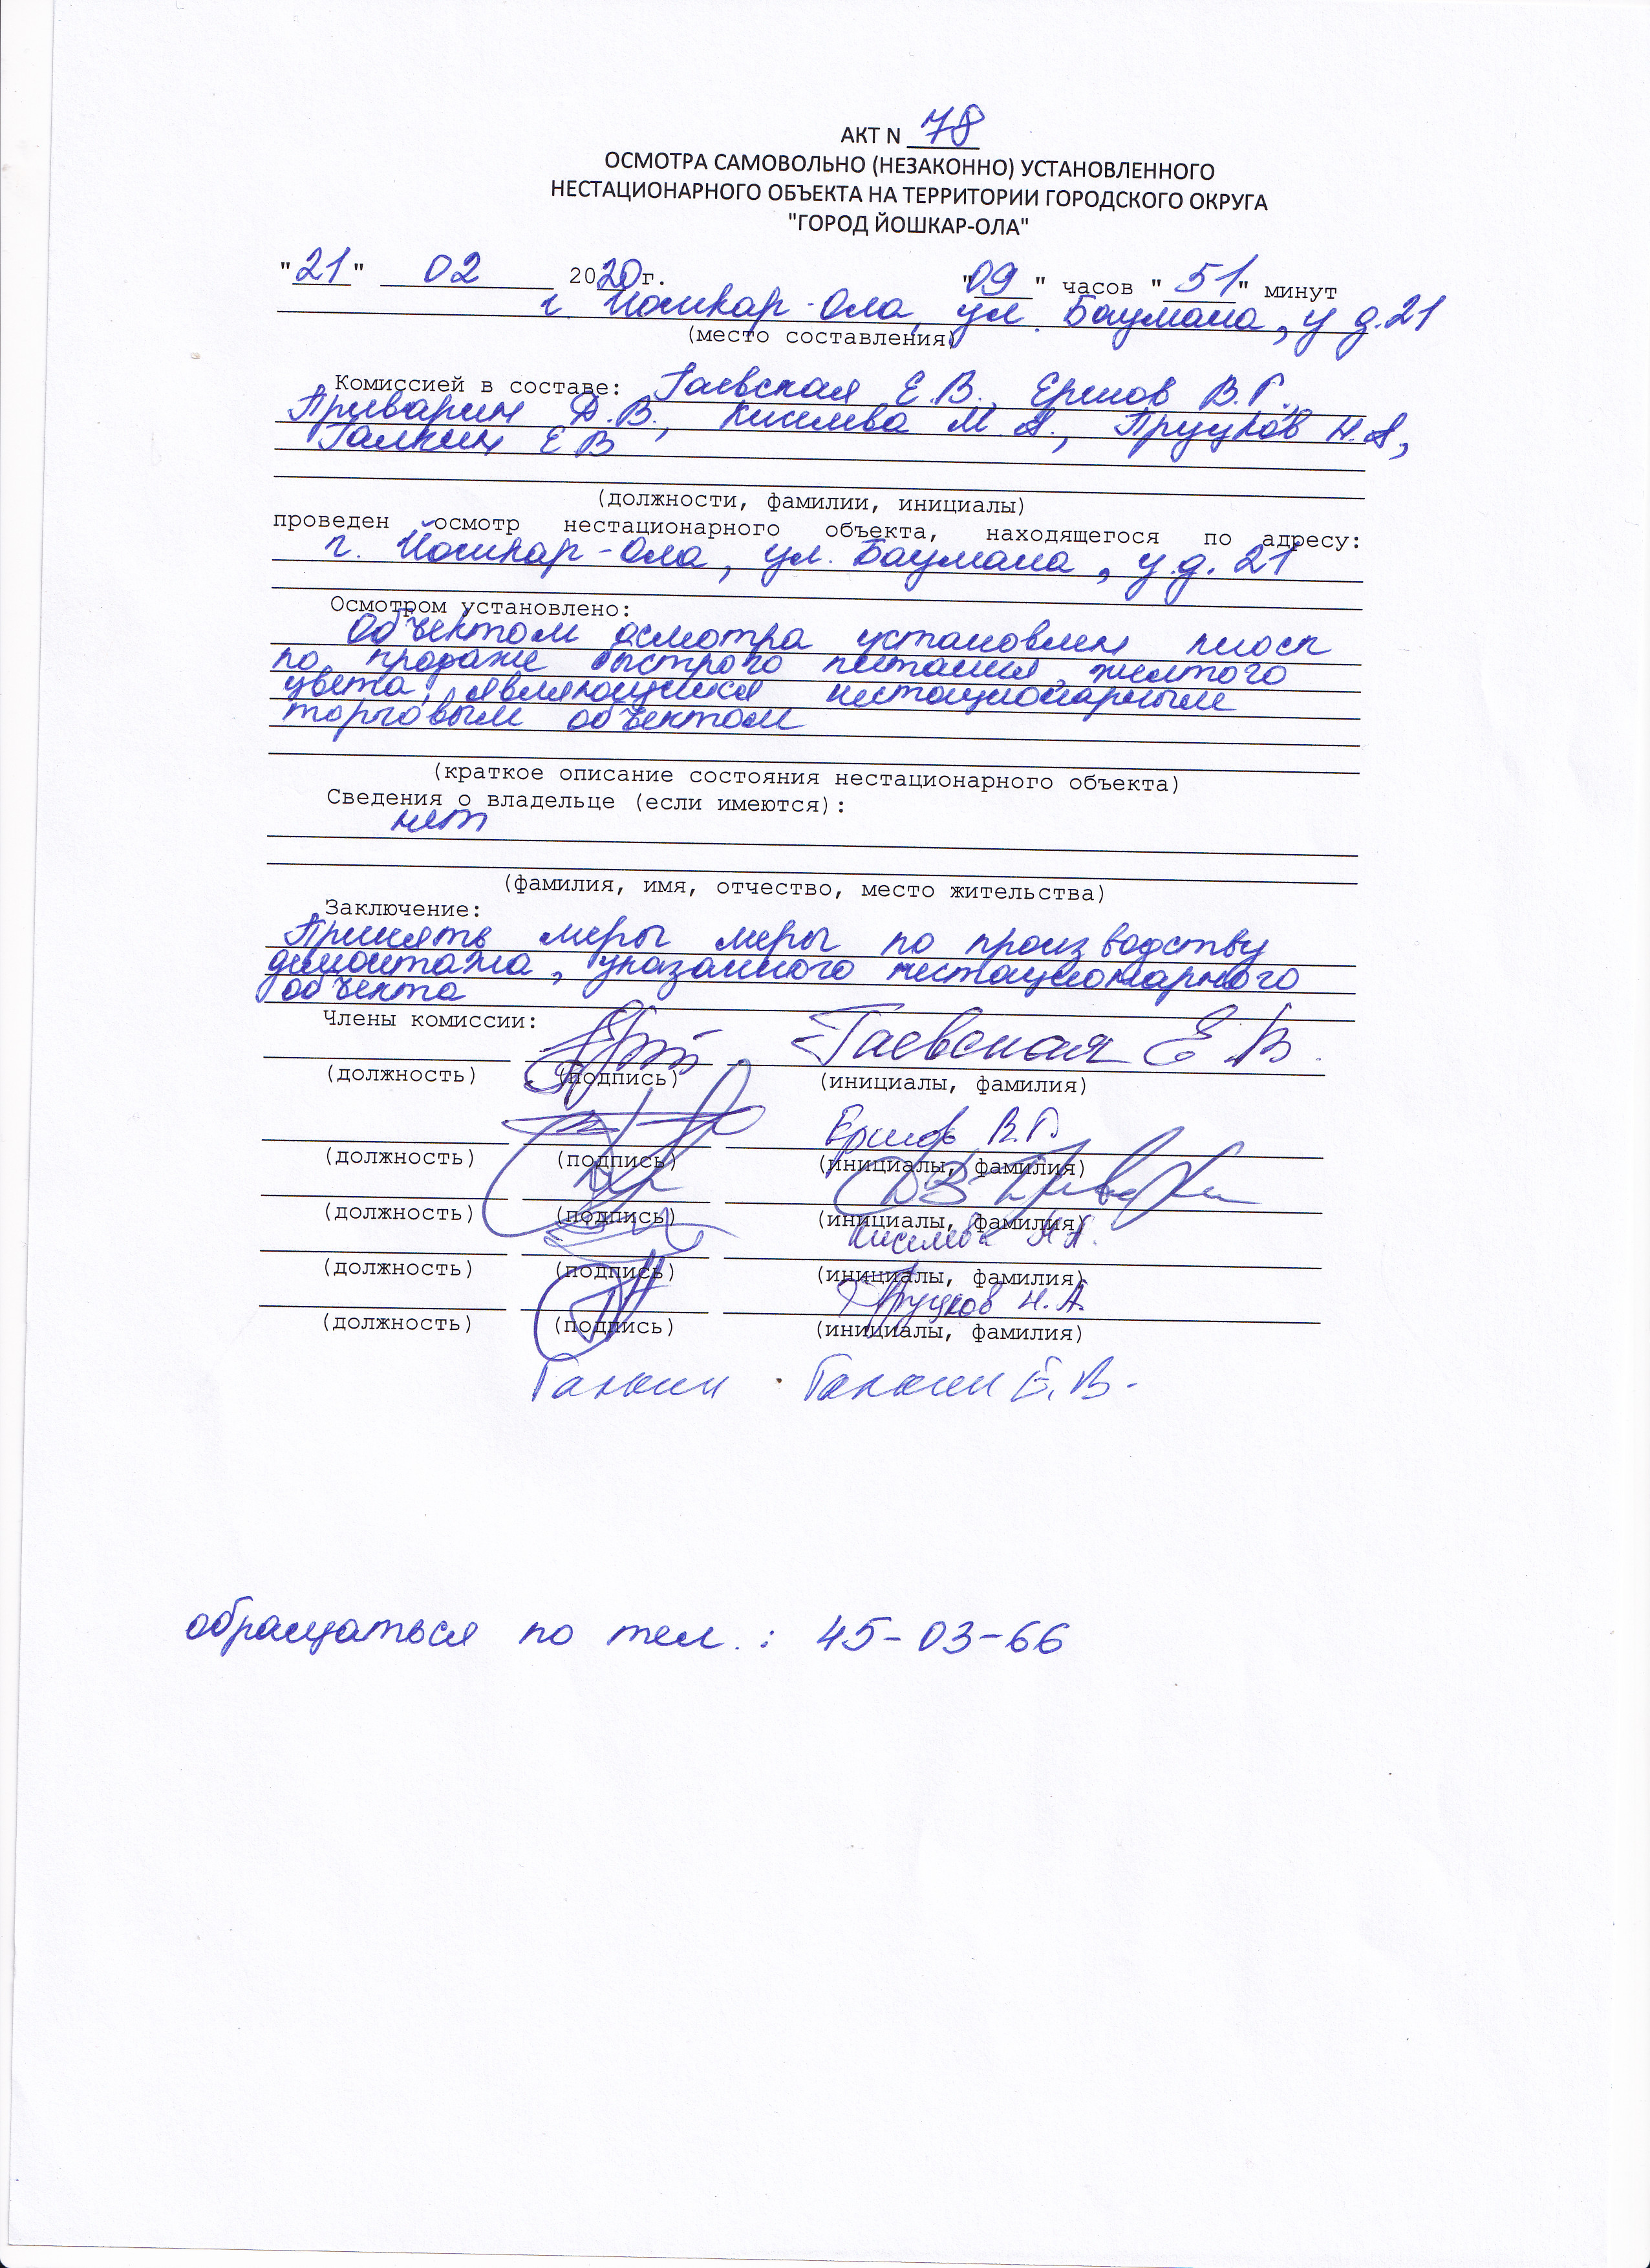 АКТ N 78
ОСМОТРА САМОВОЛЬНО (НЕЗАКОННО) УСТАНОВЛЕННОГО
НЕСТАЦИОНАРНОГО ОБЪЕКТА НА ТЕРРИТОРИИ ГОРОДСКОГО ОКРУГА
"ГОРОД ЙОШКАР-ОЛА"
"21" 02 2020 г. "09" часов "51" минут
г. Йошкар-Ола, ул. Баумана, у д.21
(место составления)
Комиссией в составе: Гаевская Е.В., Ершов В.Г.,
Приварин Д.В., Киселева М.А., Пруцков Н.А.,
Галкин Е В
(должности, фамилии, инициалы)
проведен осмотр нестационарного объекта, находящегося по адресу:
г. Йошкар-Ола, ул. Баумана, у д. 21
Осмотром установлено:
Объектом осмотра установлен киоск
по продаже быстрого питания, желтого
цвета, являющийся нестационарным
торговым объектом
(краткое описание состояния нестационарного объекта)
Сведения о владельце (если имеются):
нет
(фамилия, имя, отчество, место жительства)
Заключение:
Принять меры меры по производству
демонтажа, указанного нестационарного
объекта
Члены комиссии:
Гаевская Е В.
(должность) (подпись) (инициалы, фамилия)
Ершов В.Г.
(должность) (подпись) (инициалы, фамилия)
ДВ Приварин
(должность) (подпись) (инициалы, фамилия)
Киселева М.А.
(должность) (подпись) (инициалы, фамилия)
Пруцков Н.А.
(должность) (подпись) (инициалы, фамилия)
Галкин Галкин Е.В.
обращаться по тел.: 45-03-66